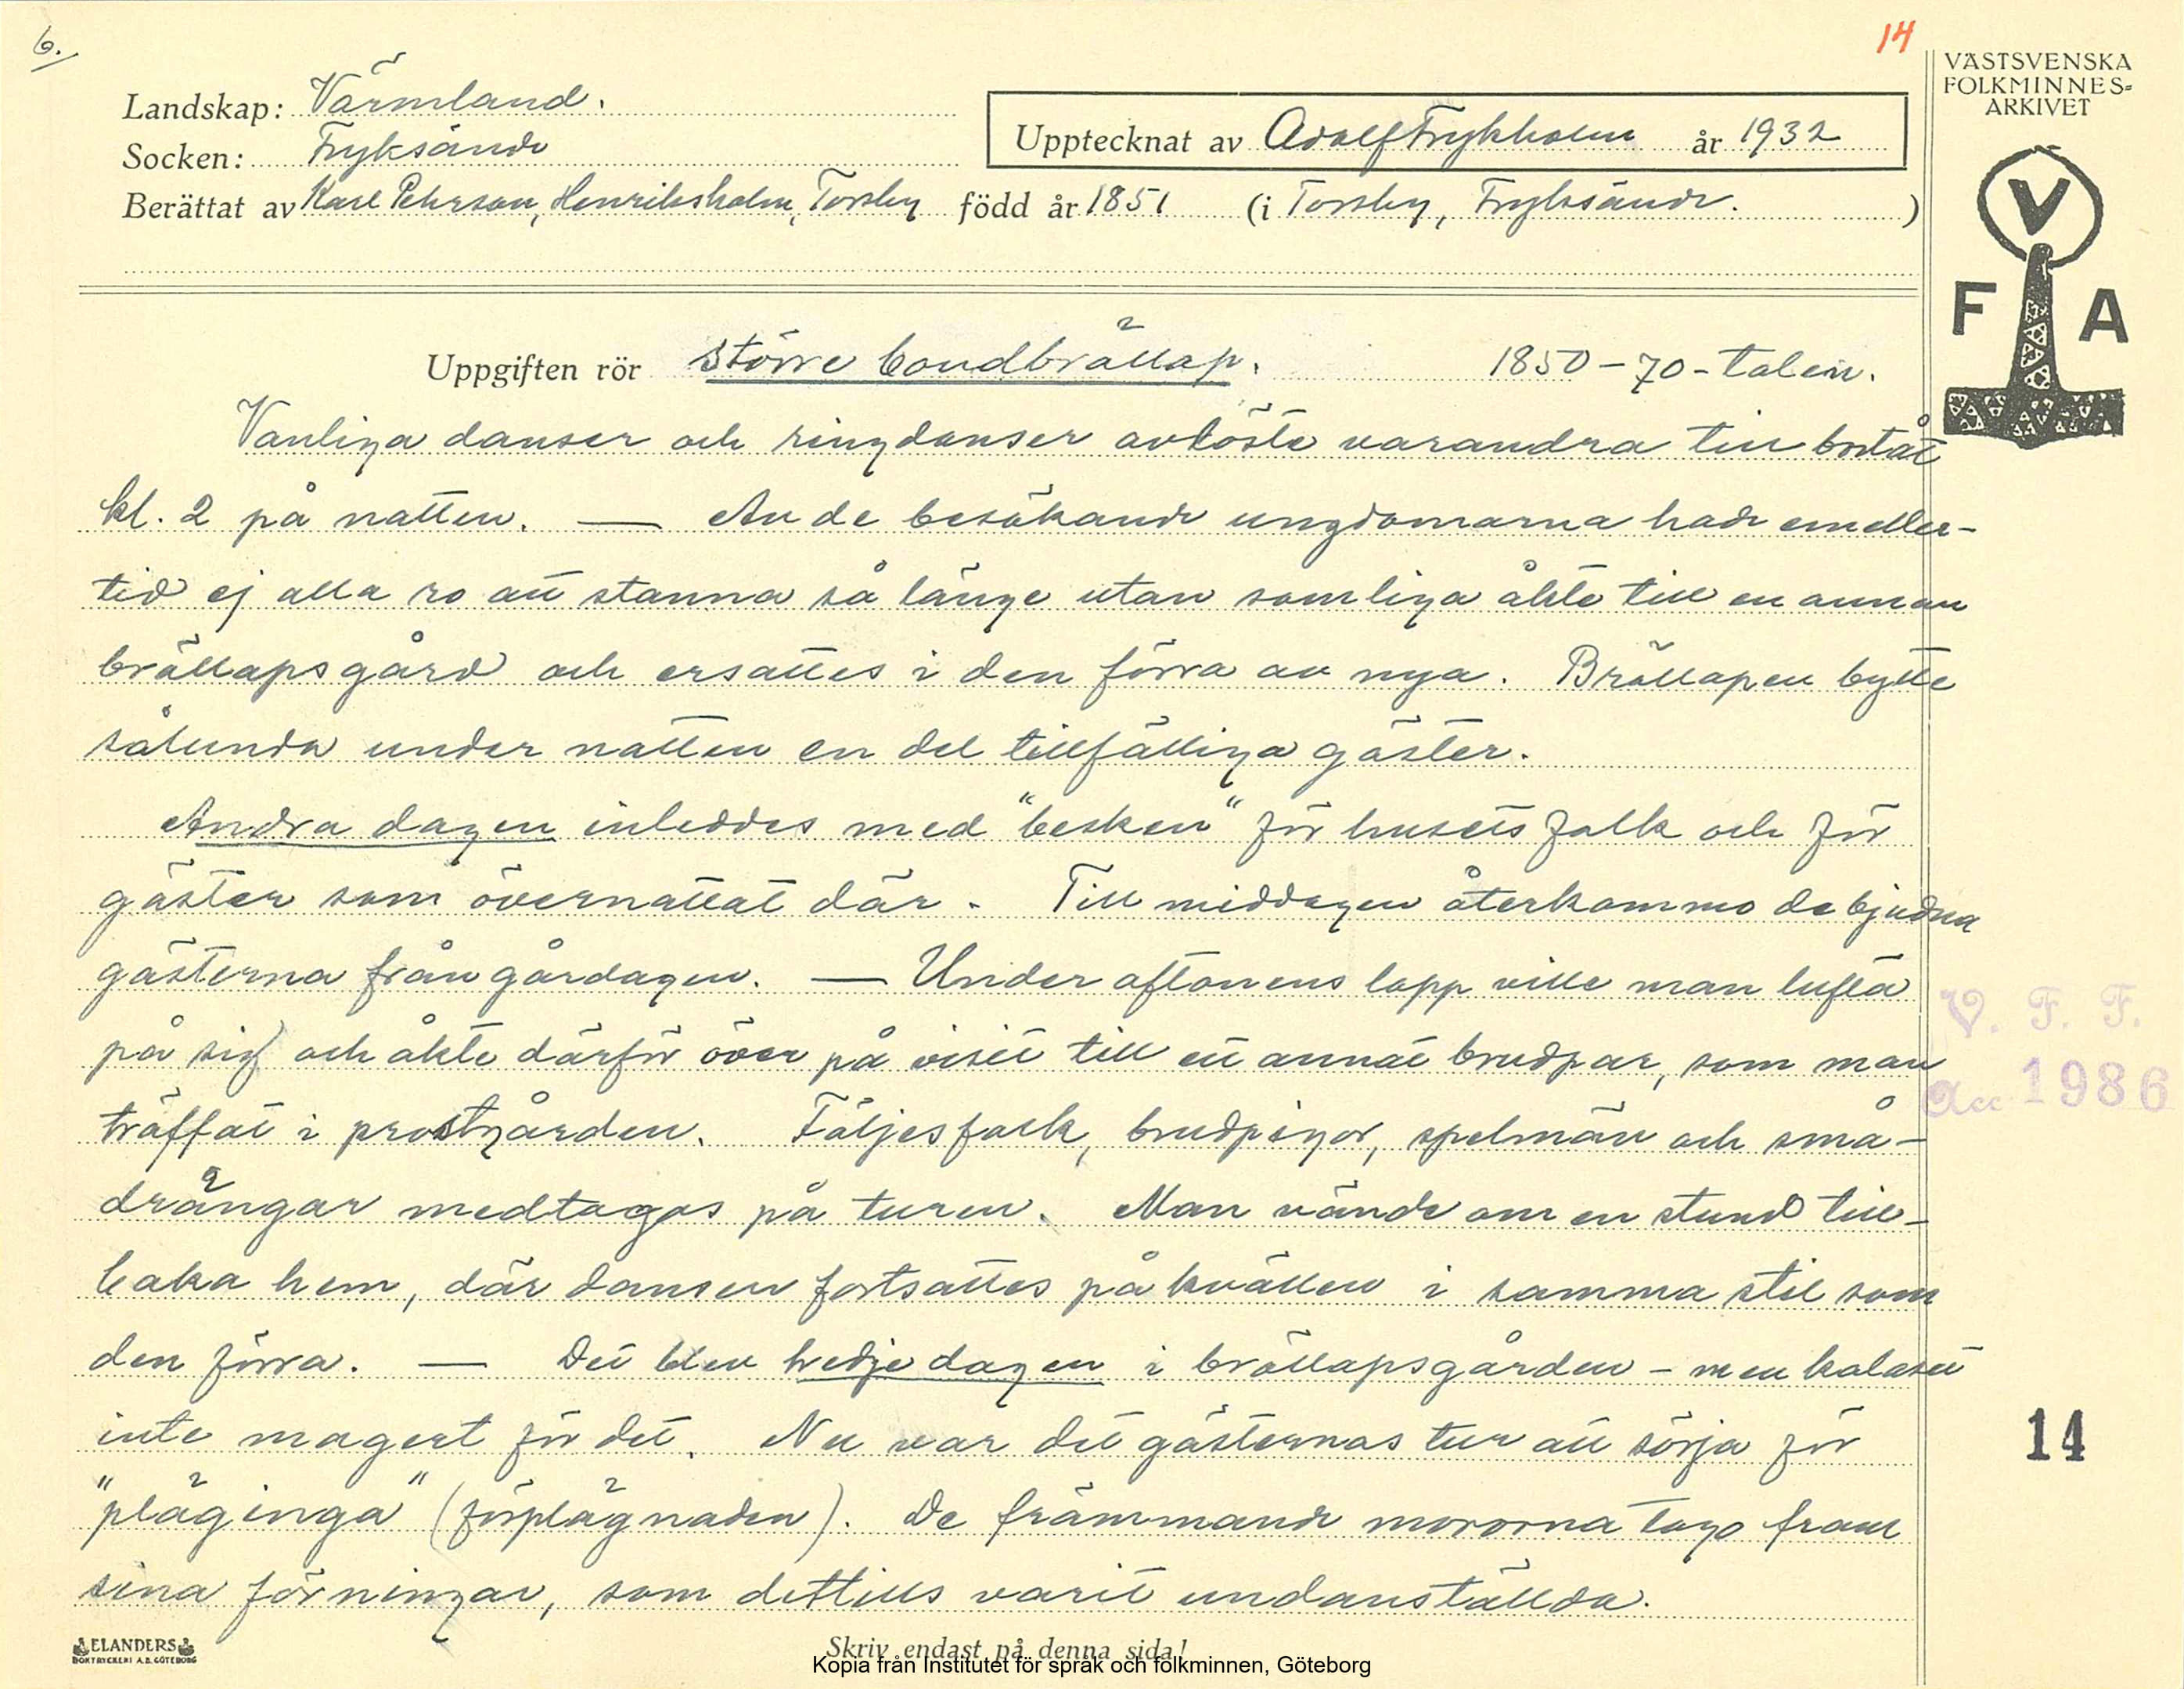 6.
14
VÄSTSVENSKA
FOLKMINNES=
ARKIVET
Landskap: Värmland.
Socken: Fryksände
Upptecknat av Adolf Frykholm år 1932
Berättat av Karl Pehrson, Henriksholm, Torsby född år 1851 (i Torsby, Fryksände. )
V
F A
Uppgiften rör större bondbröllop. 1850-70-talen.
Vanliga danser och ringdanser avlöste varandra till bortåt
kl. 2 på natten. — Av de besökande ungdomarna hade emeller-
tid ej alla ro att stanna så länge utan somliga åkte till en annan
bröllopsgård och ersattes i den förra av nya. Bröllopen bytte
sålunda under natten en del tillfälliga gäster.
Andra dagen inleddes med "besken" för husets folk och för
gäster som övernattat där. Till middagen återkommo de bjudna
gästerna från gårdagen. — Under aftonens lopp ville man lufta
på sig och åkte därför över på visit till ett annat brudpar, som man
träffat i prostgården. Följesfolk, brudpigor, spelmän och små-
drängar medtogos på turen. Man vände om en stund till-
baka hem, där dansen fortsattes på kvällen i samma stil som
den förra. — Det blev tredje dagen i bröllopsgården - men kalaset
inte magert för det. Nu var det gästernas tur att sörja för
"pläginga" (förplägnaden). De främmande mororna togo fram
sina förningar, som dittills varit undanställda.
V. F. F.
Acc 1986
14
ELANDERS
BOKTRYCKERI A.B. GÖTEBORG
Skriv endast på denna sida!
Kopia från Institutet för språk och folkminnen, Göteborg